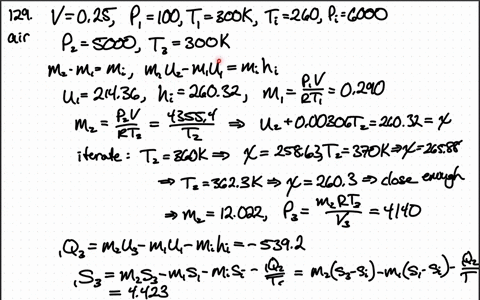 129. V=0.25, P₁=100, T₁=300K, Tᵢ=260, Pᵢ=6000
air P₂=5000, T₃=300K
m₂-m₁=mᵢ, m₂u₂-m₁u₁=mᵢhᵢ
u₁=214.36, hᵢ=260.32, m₁=P₁V/RT₁=0.290
m₂=P₂V/RT₂=4355.4/T₂ ⇒ u₂+0.00306T₂=260.32=x
iterate: T₂=360K⇒ x=258.63, T₂=370K⇒x=265.88
⇒T₂=362.3K⇒x=260.3⇒close enough
⇒m₂=12.022, P₃=m₂RT₃/V₃=4140
₁Q₃=m₂u₃-m₁u₁-mᵢhᵢ=-539.2
₁S₃=m₂S₃-m₁S₁-mᵢSᵢ-₁Q₂/Tₒ=m₂(S₃-Sᵢ)-m₁(S₁-Sᵢ)-Q₂/T
=4.423